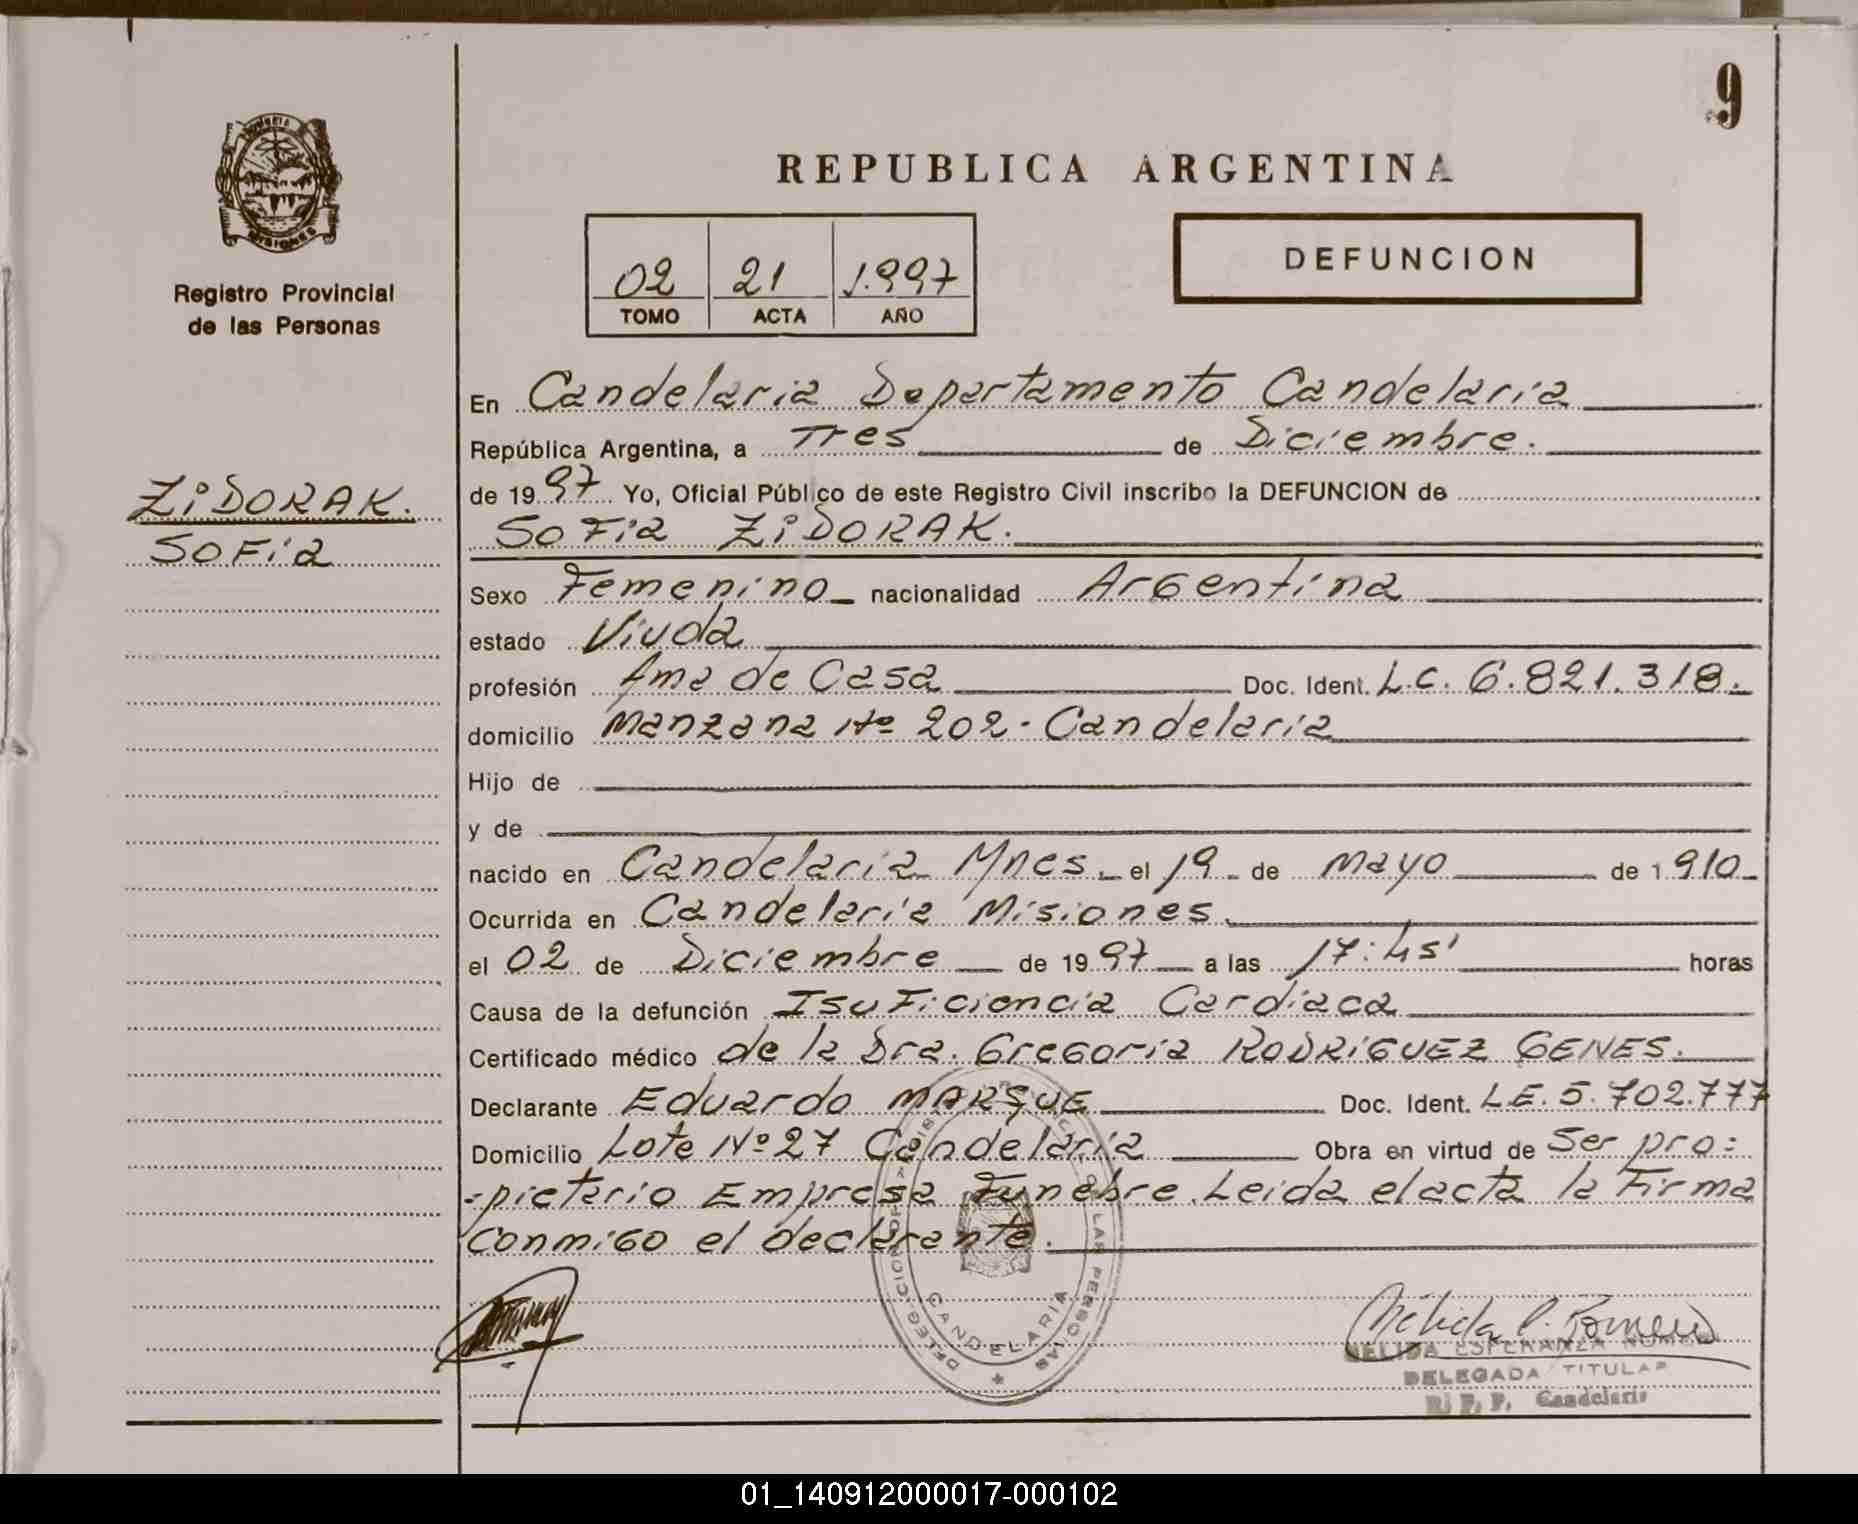 9
REPUBLICA ARGENTINA
PROVINCIA
MISIONES
Registro Provincial
de las Personas
02 21 1.997
TOMO ACTA AÑO
DEFUNCION
ZiDORAK.
SOFia
En Candelaria Departamento Candelaria
República Argentina, a Tres de Diciembre.
de 19 97 Yo, Oficial Público de este Registro Civil inscribo la DEFUNCION de
SOFia ZiDORAK.
Sexo Femenino nacionalidad Argentina
estado Viuda
profesión Ama de Casa Doc. Ident. L.C. 6.821.318.
domicilio Manzana Nº 202 - Candelaria
Hijo de
y de
nacido en Candelaria Mnes. el 19 de Mayo de 1 910
Ocurrida en Candelaria Misiones.
el 02 de Diciembre de 19 97 a las 17:45' horas
Causa de la defunción Isuficiencia Cardiaca
Certificado médico de la Dra. Gregoria RODRIGUEZ GENES.
Declarante Eduardo MARQUE Doc. Ident. L.E. 5.702.777
Domicilio Lote Nº 27 Candelaria Obra en virtud de Ser pro=
=pietario Empresa Funebre. Leida el acta la Firma
Conmigo el declarante.
DELEGACION
DE LAS PERSONAS
CANDELARIA
NELIDA ESPERANZA
DELEGADA TITULAR
R. P. P. Candelaria
01_140912000017-000102